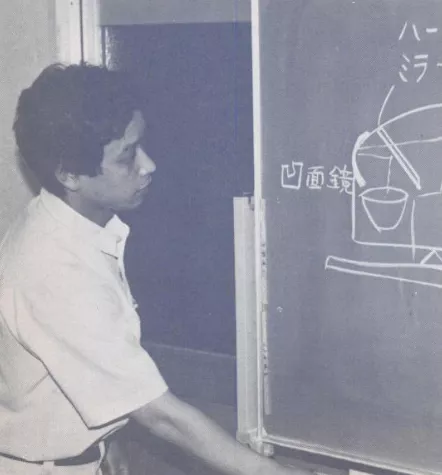 ハー
ミラー
凹面鏡